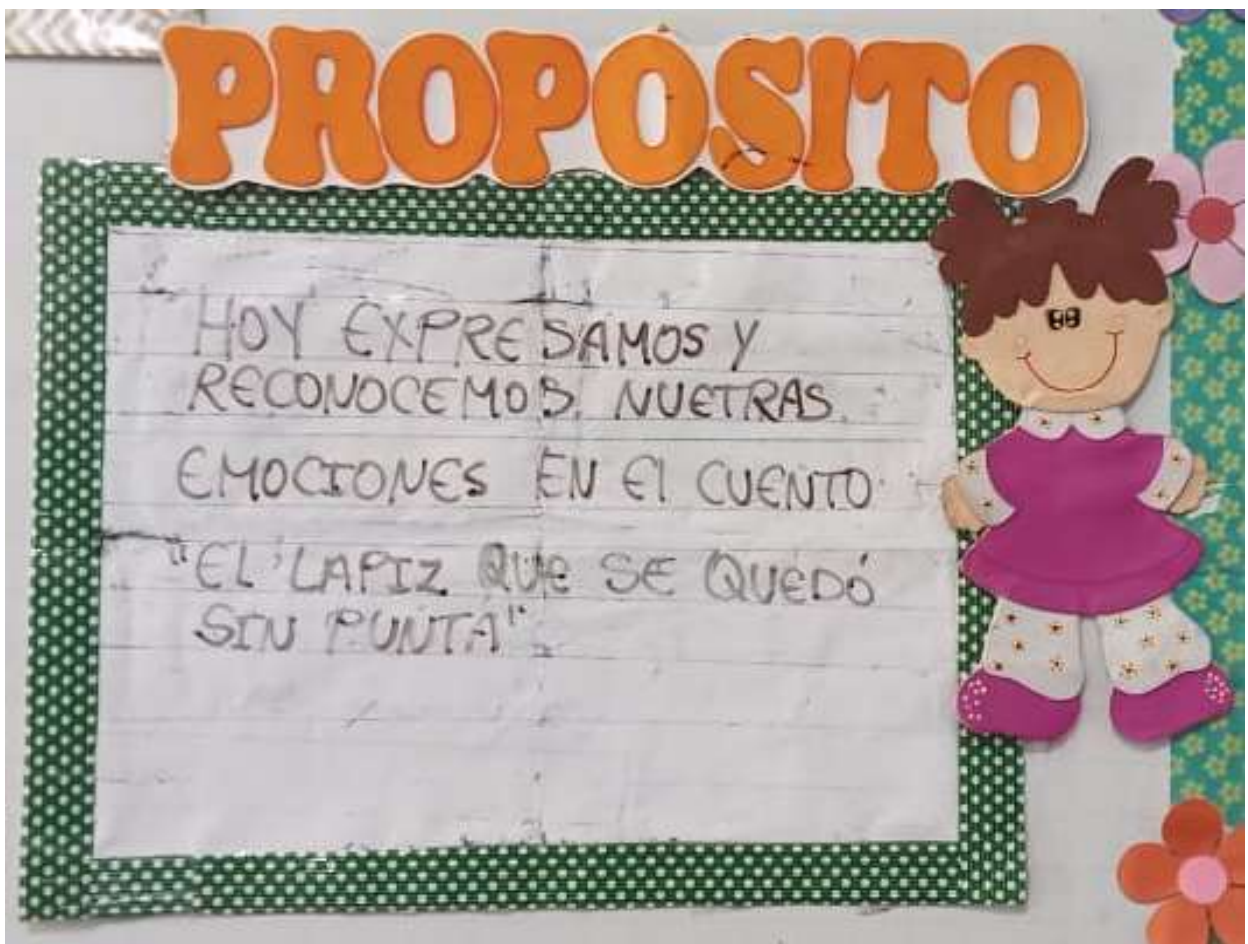 PROPOSITO
HOY EXPRESAMOS Y
RECONOCEMOS NUETRAS
EMOCIONES EN El CUENTO
"EL LAPIZ QUE SE QUEDÓ
SIN PUNTA"